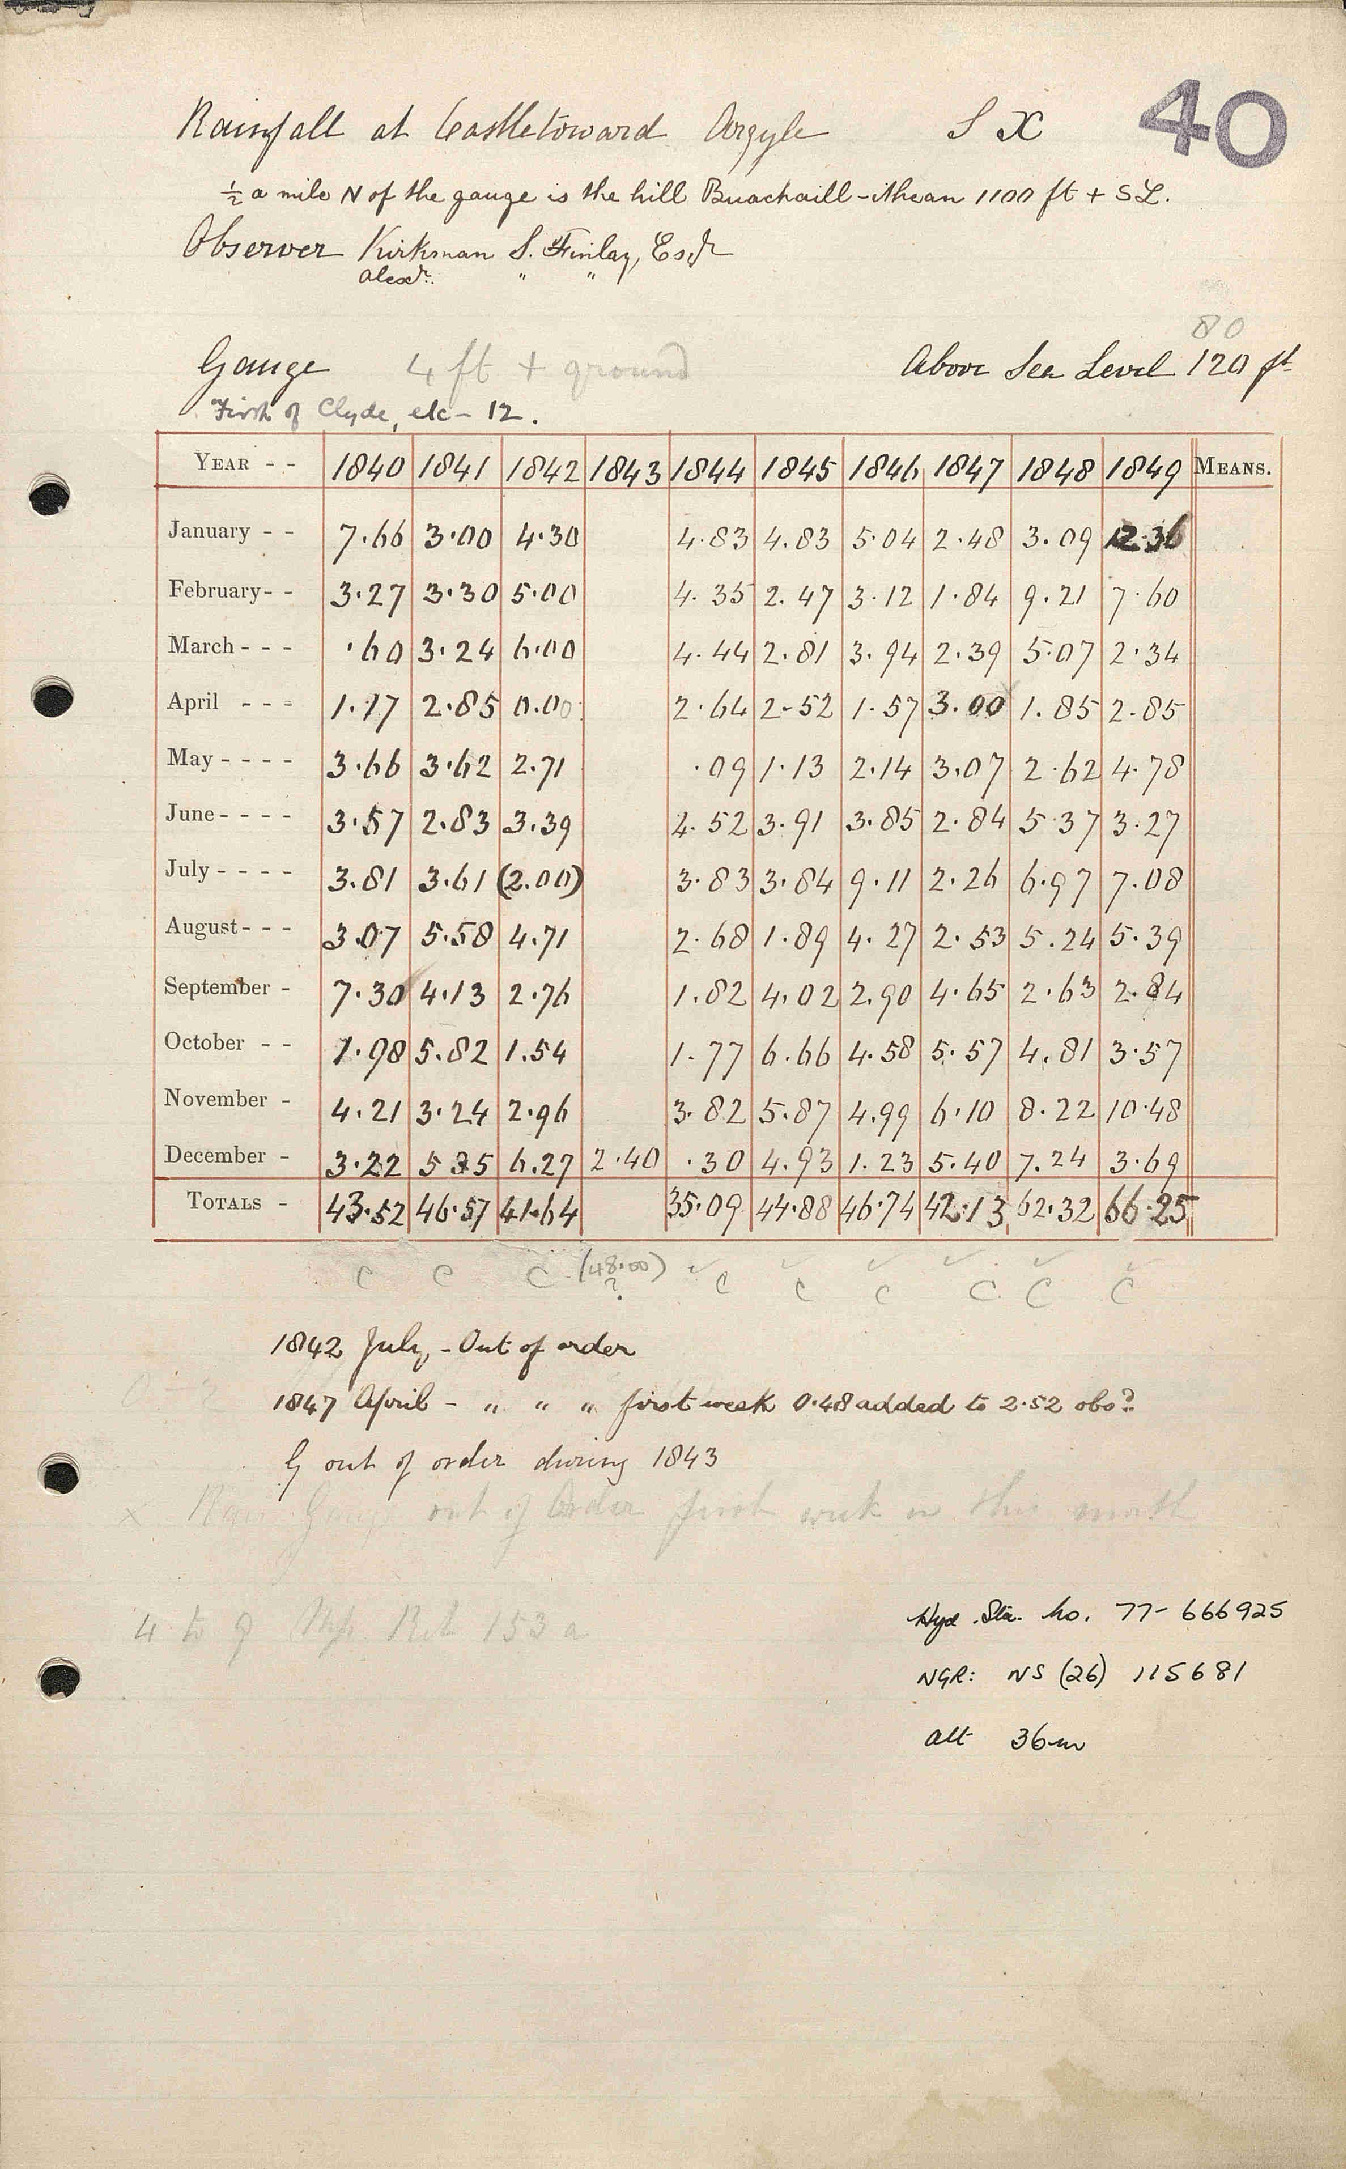 40
Rainfall at Castletoward Argyle S X
½ a mile N of the gauge is the hill Buachaill-ithean 1100 ft + SL.
Observer Kirkman S. Finlay, Esqr
Alexr. " "
80
Gauge 4 ft + ground Above Sea Level 120 ft
Firth of Clyde, etc - 12.
YEAR - - 1840 1841 1842 1843 1844 1845 1846 1847 1848 1849 MEANS.
January - - 7.66 3.00 4.30 4.83 4.83 5.04 2.48 3.09 12.36
February - - 3.27 3.30 5.00 4.35 2.47 3.12 1.84 9.21 7.60
March - - - .60 3.24 6.00 4.44 2.81 3.94 2.39 5.07 2.34
April - - - 1.17 2.85 0.00 2.64 2.52 1.57 3.00 1.85 2.85
May - - - - 3.66 3.62 2.71 .09 1.13 2.14 3.07 2.62 4.78
June - - - - 3.57 2.83 3.39 4.52 3.91 3.85 2.84 5.37 3.27
July - - - - 3.81 3.61 (2.00) 3.83 3.84 9.11 2.26 6.97 7.08
August - - - 3.07 5.58 4.71 2.68 1.89 4.27 2.53 5.24 5.39
September - 7.30 4.13 2.76 1.82 4.02 2.90 4.65 2.63 2.84
October - - 1.98 5.82 1.54 1.77 6.66 4.58 5.57 4.81 3.57
November - 4.21 3.24 2.96 3.82 5.87 4.99 6.10 8.22 10.48
December - 3.22 5.35 6.27 2.40 .30 4.93 1.23 5.40 7.24 3.69
TOTALS - 43.52 46.57 41.64 35.09 44.88 46.74 42.13 62.32 66.25
C C C (48.00) ? C C C C C C
1842 July, - Out of order
1847 April - " " " first week 0.48 added to 2.52 obsd.
G out of order during 1843
x Rain Gauge out of Order first week in this month
4 to 9 153 a
Hyd. Sta. No. 77-666925
NGR: NS (26) 115681
alt 36m